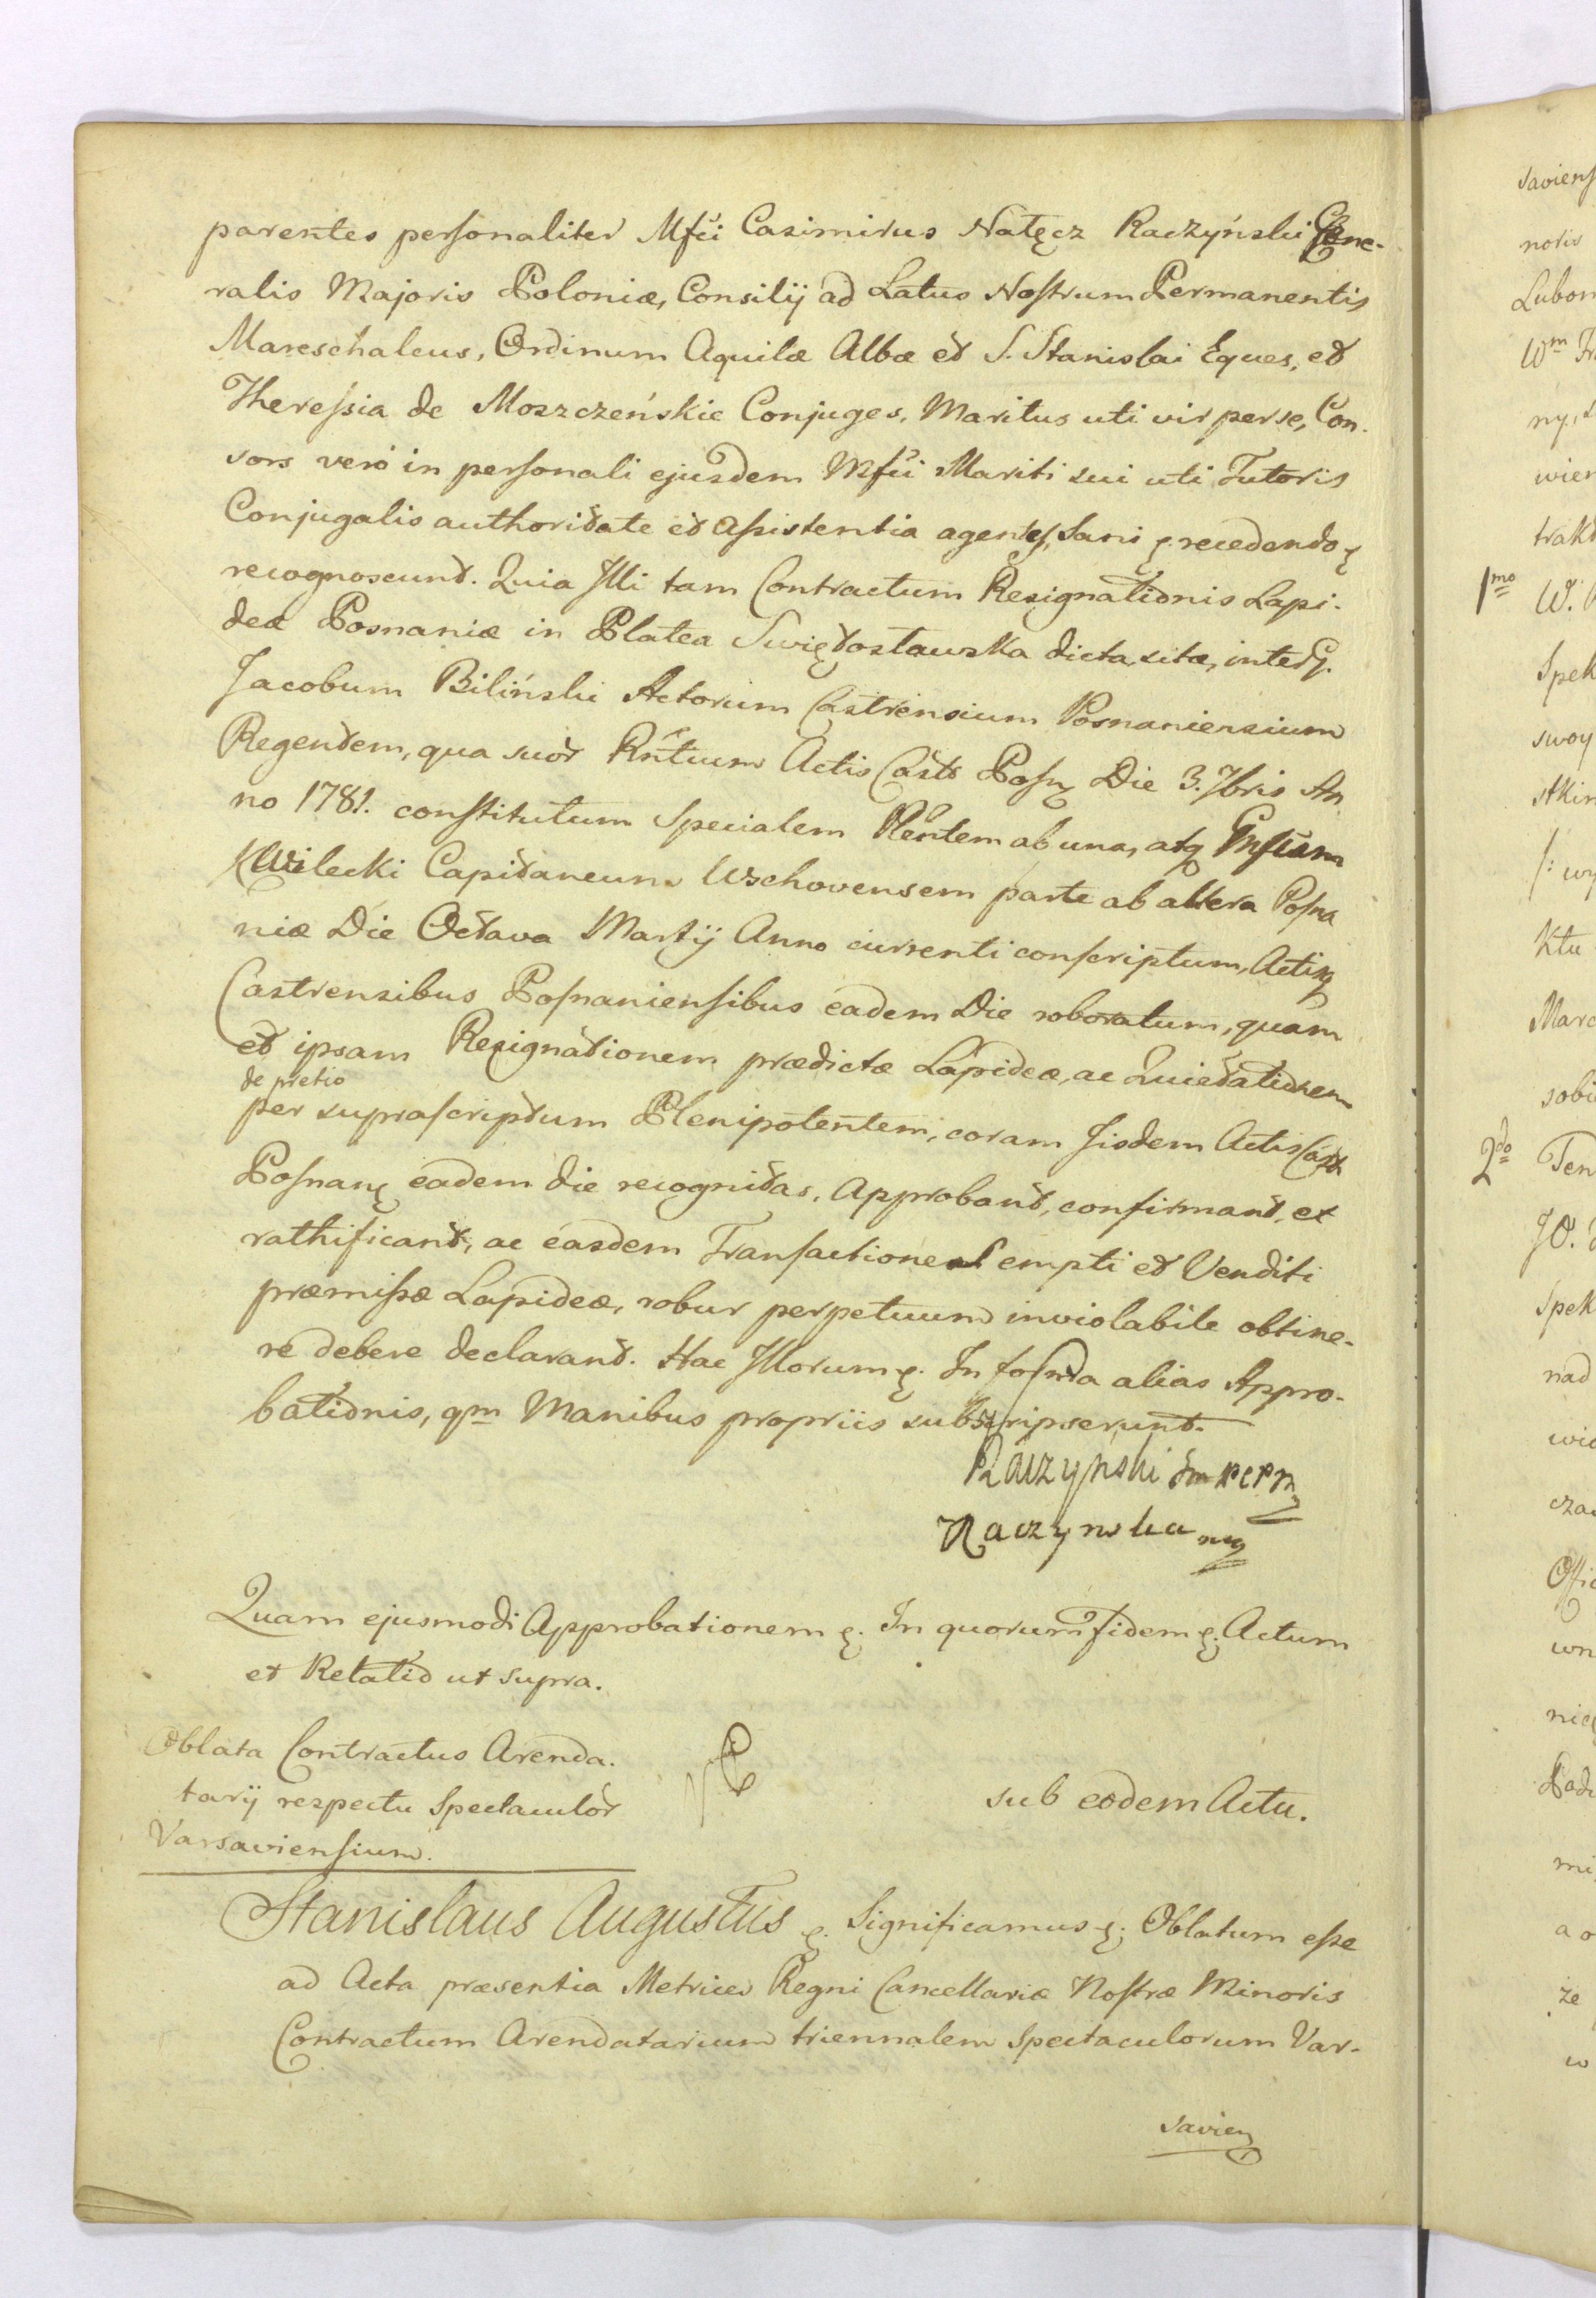 parentes personaliter Mfci Casimirus Natęcz Raczyński Gene-
ralis Majoris Poloniæ, Consilij ad Latus Nostrum Permanentis
Mareschalcus, Ordinum Aquilæ Albæ et S. Stanislai Eques, et
Theressia de Moszczeńskie Conjuges, Maritus uti vir per se, Con-
sors verò in personali ejusdem Mfci Mariti sui uti Tutoris
Conjugalis authoritate et assistentia agentes, Sani recedendo
recognoscunt. Quia Illi tam Contractum Resignationis Lapi-
deæ Posnaniæ in Platea Swiętosławska dicta, sitæ, inter G.
Jacobum Biliński Actorum Castrensium Posnaniensium
Regentem, qua suor Rntium Actis Castr Posn Die 3. 7bris An
no 1781. constitutum Specialem Plentem ab una, atq
Kwilecki Capitaneum Wschovensem parte ab altera Posna
niæ Die Octava Martij Anno currenti conscriptum, Actisq
Castrensibus Posnaniensibus eadem Die roboratum, quam
et ipsam Resignationem prædictæ Lapideæ, ac Quietationem
de pretio
per suprascriptum Plenipotentem, coram iisdem Actis Castr
Posnan eadem die recognitas, Approbant, confirmant, et
rathificant, ac easdem Transactiones empti et Venditi
præmissæ Lapideæ, robur perpetuum inviolabile obtine-
re debere declarant. Hac Illorum In forma alias Appro-
bationis, qm Manibus propriis subscripserunt.
Raczyński Gm
Raczynska mp
Quam ejusmodi Approbationem In quorum fidem Actum
et Relatio ut supra.
Oblata Contractus Arenda-
tarij respectu Spectaculor
Varsaviensium.
sub eodem Actu.
Stanislaus Augustus Significamus Oblatum esse
ad Acta præsentia Metrices Regni Cancellariæ Nostræ Minoris
Contractum Arendatarium triennalem Spectaculorum Var-
savien
saviens
noris
Lubom
Wm
ny,
wien
trakt
1mo W.
Spek
swoy
Ktu
Marc
sobie
2do Ten
JO.
Spek
nad
wie
Offic
nie
mi
a o
że
w